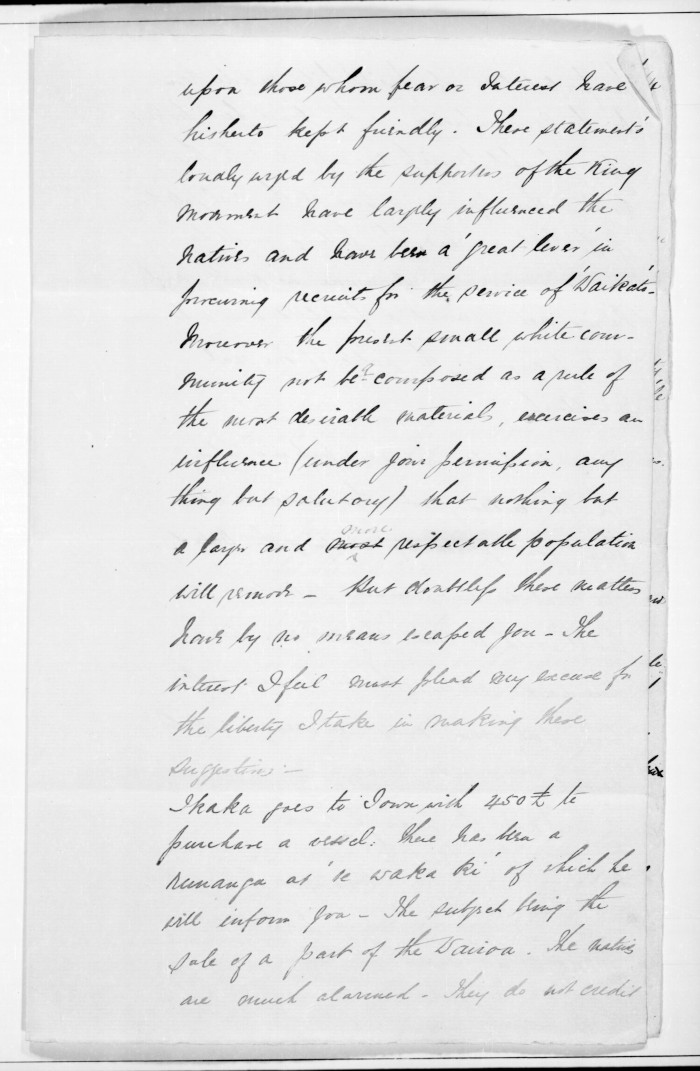 upon those whom fear or Interest have
hitherto kept friendly. These statements
loudly urged by the supporters of the King
movement have largely influenced the
Natives and have been a 'great lever' in
procuring recruits for the service of 'Waikato' -
Moreover the present small white com-
munity not being composed as a rule of
the most desirable materials, exercises an
influence (under your permission, any
thing but salutary) that nothing but
a larger and most more respectable population
will remove - But doubtless these matters
have by no means escaped you - The
interest I feel must plead my excuse for
the liberty I take in making these
suggestions -
Ihaka goes to Town with 450 £ to
purchase a vessel. There has been a
runanga at 'Te Waka Ki' of which he
will inform you - The subject being the
sale of a part of the Wairoa. The natives
are much alarmed - They do not credit